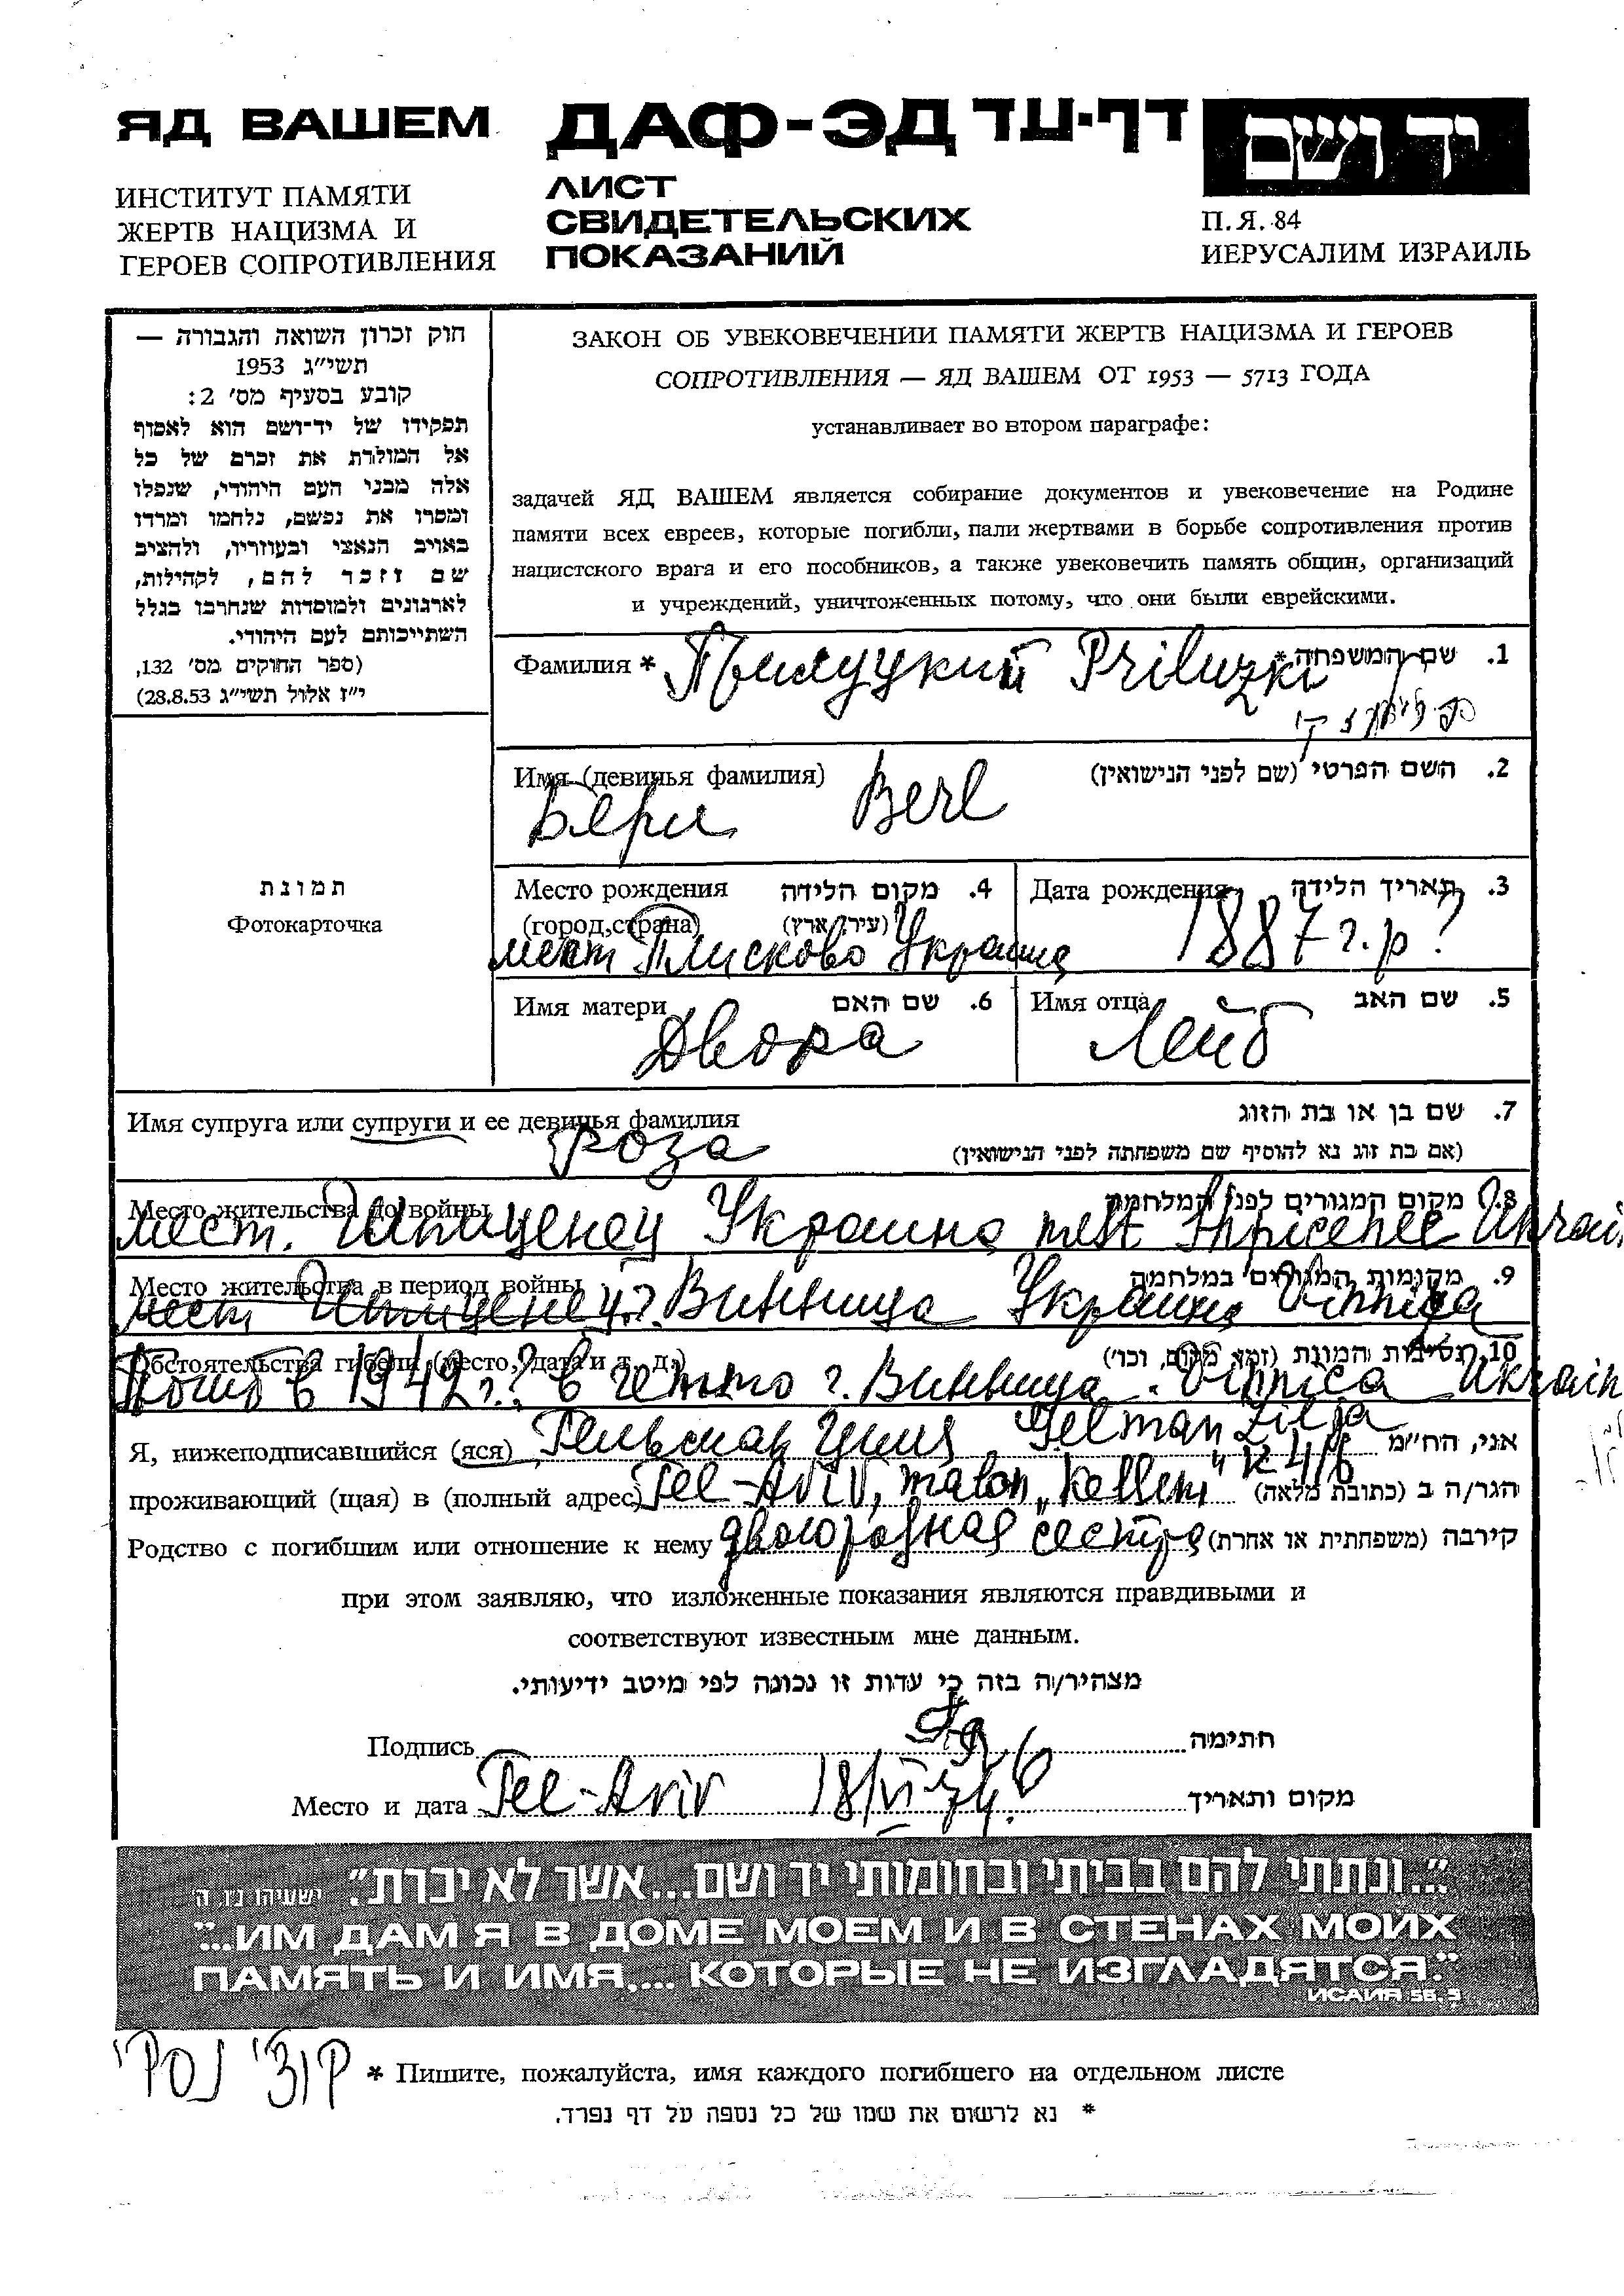 ЯД ВАШЕМ
ДАФ-ЭД דף-עד
יד ושם
ИНСТИТУТ ПАМЯТИ
ЖЕРТВ НАЦИЗМА И
ГЕРОЕВ СОПРОТИВЛЕНИЯ
ЛИСТ
СВИДЕТЕЛЬСКИХ
ПОКАЗАНИЙ
П.Я. 84
ИЕРУСАЛИМ ИЗРАИЛЬ
חוק זכרון השואה והגבורה —
תשי״ג 1953
קובע בסעיף מס׳ 2:
תפקידו של יד־ושם הוא לאסוף
אל המולדת את זכרם של כל
אלה מבני העם היהודי, שנפלו
ומסרו את נפשם, נלחמו ומרדו
באויב הנאצי ובעוזריו, ולהציב
שם וזכר להם, לקהילות,
לארגונים ולמוסדות שנחרבו בגלל
השתייכותם לעם היהודי.
(ספר החוקים מס׳ 132,
י״ז אלול תשי״ג 28.8.53)
ЗАКОН ОБ УВЕКОВЕЧЕНИИ ПАМЯТИ ЖЕРТВ НАЦИЗМА И ГЕРОЕВ
СОПРОТИВЛЕНИЯ — ЯД ВАШЕМ ОТ 1953 — 5713 ГОДА
устанавливает во втором параграфе:
задачей ЯД ВАШЕМ является собирание документов и увековечение на Родине
памяти всех евреев, которые погибли, пали жертвами в борьбе сопротивления против
нацистского врага и его пособников, а также увековечить память общин, организаций
и учреждений, уничтоженных потому, что они были еврейскими.
Фамилия * Прилуцкий Priluzki שם המשפחה * .1
פרילוצקי
Имя (девичья фамилия) השם הפרטי (שם לפני הנישואין) .2
Берл Berl
תמונת
Фотокарточка
Место рождения מקום הלידה .4
(город, страна) (עיר, ארץ)
мест Плисково Украина
Дата рождения תאריך הלידה .3
1887 г.р?
Имя матери שם האם .6
Двора
Имя отца שם האב .5
Лейб
Имя супруга или супруги и ее девичья фамилия שם בן או בת הזוג .7
Роза (אם בת זוג נא להוסיף שם משפחתה לפני הנישואין)
Место жительства до войны מקום המגורים לפני המלחמה .8
мест. Шпиценец Украина mest Shpicenec Ukrain
Место жительства в период войны מקומות המגורים במלחמה .9
мест Шпиценец г. Винница Украина Vinnica
Обстоятельства гибели (место, дата и т. д.) נסיבות המוות (זמן, מקום, וכו׳) .10
Погиб в 1942 г.? в гетто г. Винница. Vinnica Ukrain
Я, нижеподписавшийся (яся) Гельман Циля Gelman Zilja אני, הח״מ
проживающий (щая) в (полный адрес) Tel-Aviv, malon „Kelleni" k 4/6 הגר/ה ב (כתובת מלאה)
Родство с погибшим или отношение к нему двоюродная сестра קירבה (משפחתית או אחרת)
при этом заявляю, что изложенные показания являются правдивыми и
соответствуют известным мне данным.
מצהיר/ה בזה כי עדות זו נכונה לפי מיטב ידיעותי.
Подпись חתימה
Место и дата Tel-Aviv 18/VI-74. מקום ותאריך
"...ונתתי להם בביתי ובחומותי יד ושם...אשר לא יכרת." ישעיהו נ״ו, ה׳
"...ИМ ДАМ Я В ДОМЕ МОЕМ И В СТЕНАХ МОИХ
ПАМЯТЬ И ИМЯ,... КОТОРЫЕ НЕ ИЗГЛАДЯТСЯ."
ИСАИЯ 56, 5
* Пишите, пожалуйста, имя каждого погибшего на отдельном листе
* נא לרשום את שמו של כל נספה על דף נפרד.